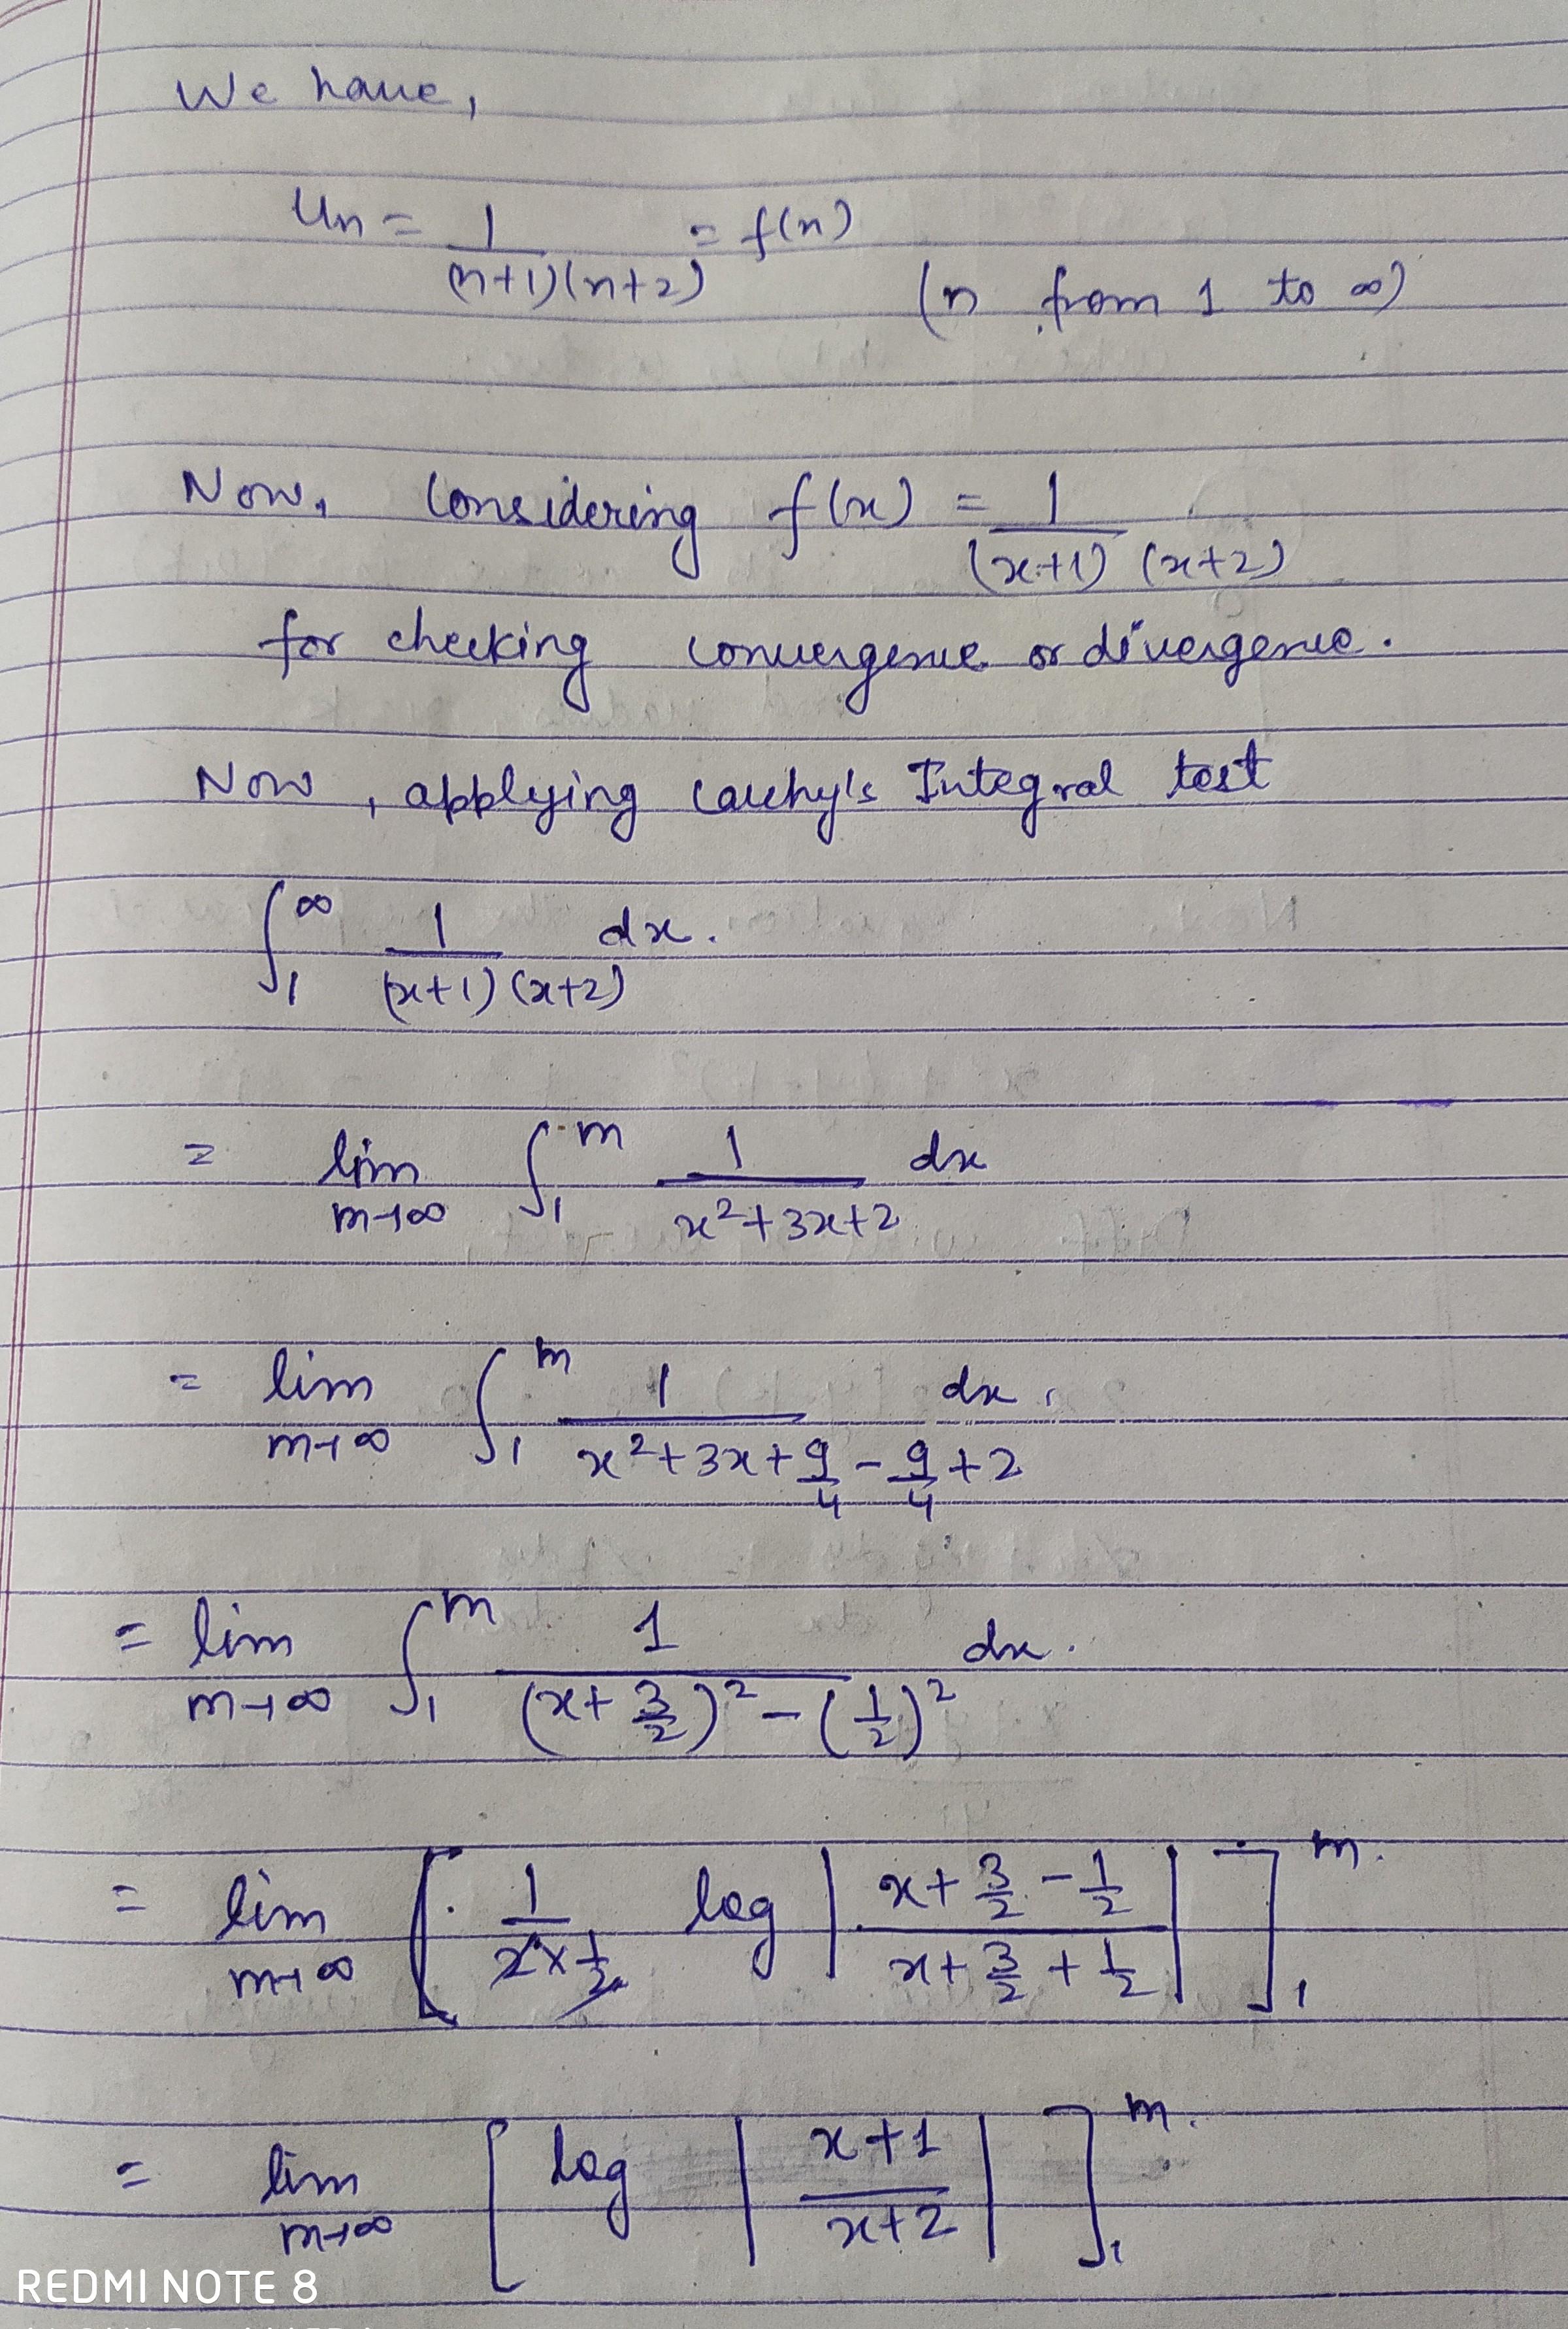 We have,
Un = 1/((n+1)(n+2)) = f(n)
(n from 1 to ∞)
Now, Considering f(x) = 1/((x+1)(x+2))
for checking convergence or divergence.
Now, applying Cauchy's Integral test
∫₁^∞ 1/((x+1)(x+2)) dx.
= lim m→∞ ∫₁^m 1/(x²+3x+2) dx
= lim m→∞ ∫₁^m 1/(x²+3x+9/4-9/4+2) dx.
= lim m→∞ ∫₁^m 1/((x+3/2)²-(1/2)²) dx.
= lim m→∞ [1/(2×1/2) log |(x+3/2-1/2)/(x+3/2+1/2)|]₁^m.
= lim m→∞ [log |(x+1)/(x+2)|]₁^m.
REDMI NOTE 8